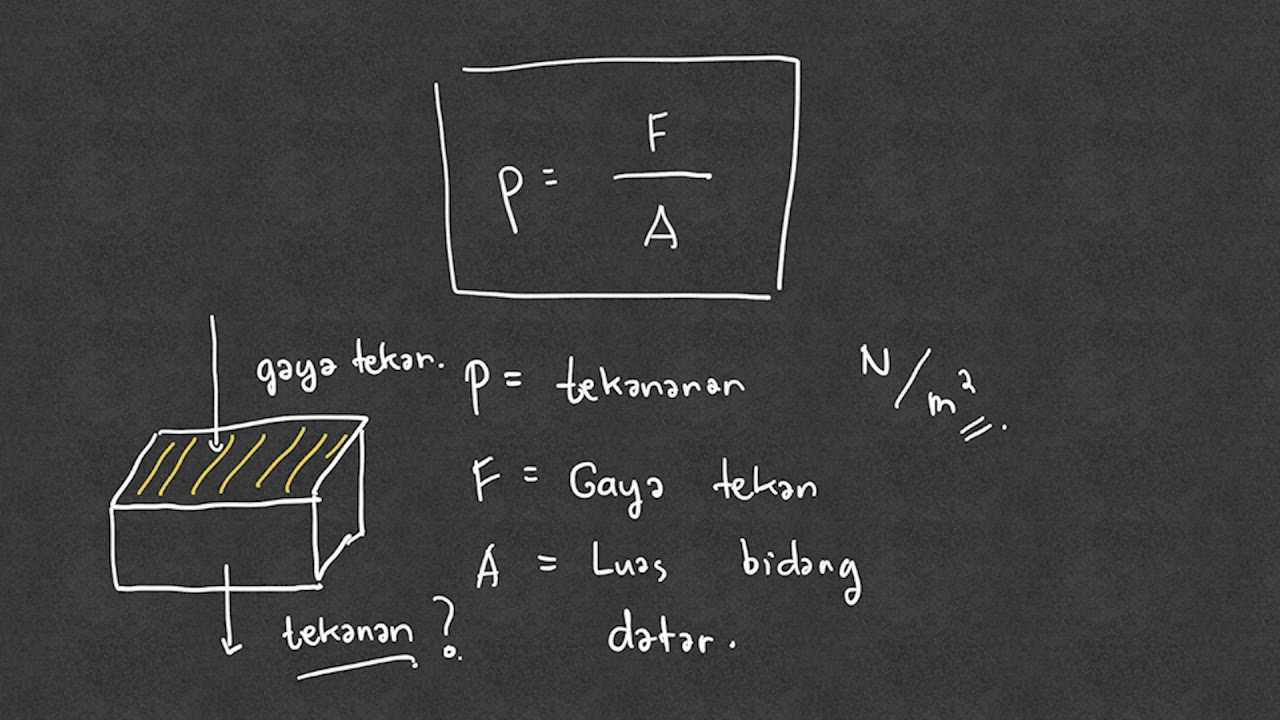 P = F / A
gaya tekan.
P = tekananan N/m²
F = Gaya tekan
A = Luas bidang
datar.
tekanan ?